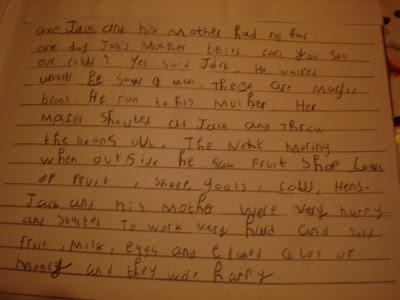 one Jack and his Mother had no food.
one day Jack's Mother telled can you sell
our cow? Yes said Jack. He walked
untill he saw a man. These are magic
beans. He ran to his Mother. Her
Mother shouted at Jack and threw
the beans out. The Next Moring
when outside he saw Fruit Shop Loads
of Fruit, sheep, goats, cow, Hens.
Jack and his Mother were very happy
and started to work very hard and sold
Fruit, Milk, eggs and erned a lot of
Money and they were happy